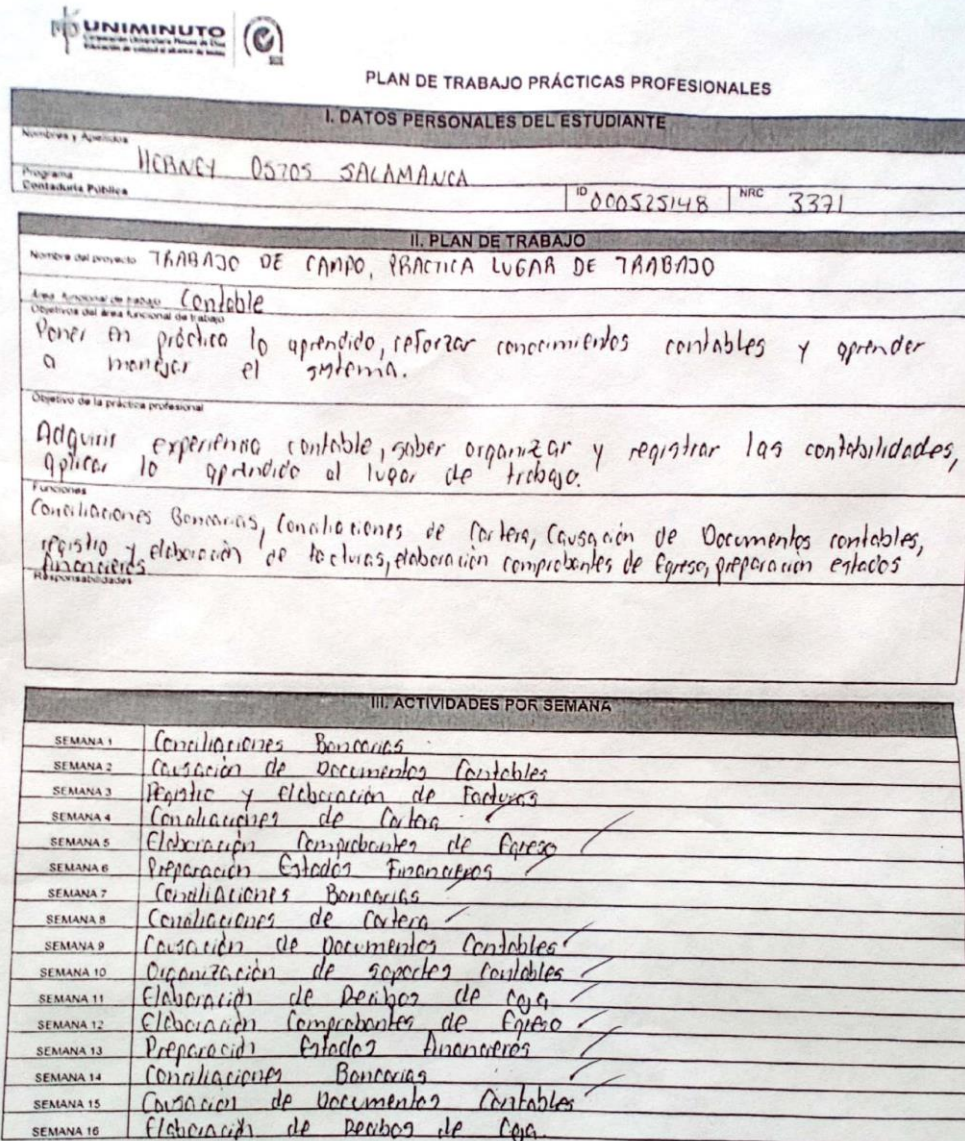 UNIMINUTO
Corporación Universitaria Minuto de Dios
Educación de calidad al alcance de todos
PLAN DE TRABAJO PRÁCTICAS PROFESIONALES
I. DATOS PERSONALES DEL ESTUDIANTE
Nombres y Apellidos
HERNEY OSTOS SALAMANCA
Programa
Contaduría Pública
ID 000525148 NRC 3371
II. PLAN DE TRABAJO
Nombre del proyecto TRABAJO DE CAMPO, PRACTICA LUGAR DE TRABAJO
Área funcional de trabajo Contable
Objetivos del área funcional de trabajo
Poner en práctica lo aprendido, reforzar conocimientos contables y aprender
a manejar el sistema.
Objetivo de la práctica profesional
Adquirir experiencia contable, saber organizar y registrar las contabilidades,
aplicar lo aprendido al lugar de trabajo.
Funciones
Conciliaciones Bancarias, Conciliaciones de Cartera, Causación de Documentos contables,
registro y elaboración de facturas, elaboración comprobantes de Egreso, preparación estados
financieros
Responsabilidades
III. ACTIVIDADES POR SEMANA
SEMANA 1 Conciliaciones Bancarias
SEMANA 2 Causación de Documentos Contables
SEMANA 3 Registro y Elaboración de Facturas
SEMANA 4 Conciliaciones de Cartera
SEMANA 5 Elaboración Comprobantes de Egreso
SEMANA 6 Preparación Estados Financieros
SEMANA 7 Conciliaciones Bancarias
SEMANA 8 Conciliaciones de Cartera
SEMANA 9 Causación de Documentos Contables
SEMANA 10 Organización de soportes contables
SEMANA 11 Elaboración de Recibos de Caja
SEMANA 12 Elaboración Comprobantes de Egreso
SEMANA 13 Preparación Estados Financieros
SEMANA 14 Conciliaciones Bancarias
SEMANA 15 Causación de Documentos Contables
SEMANA 16 Elaboración de Recibos de Caja.